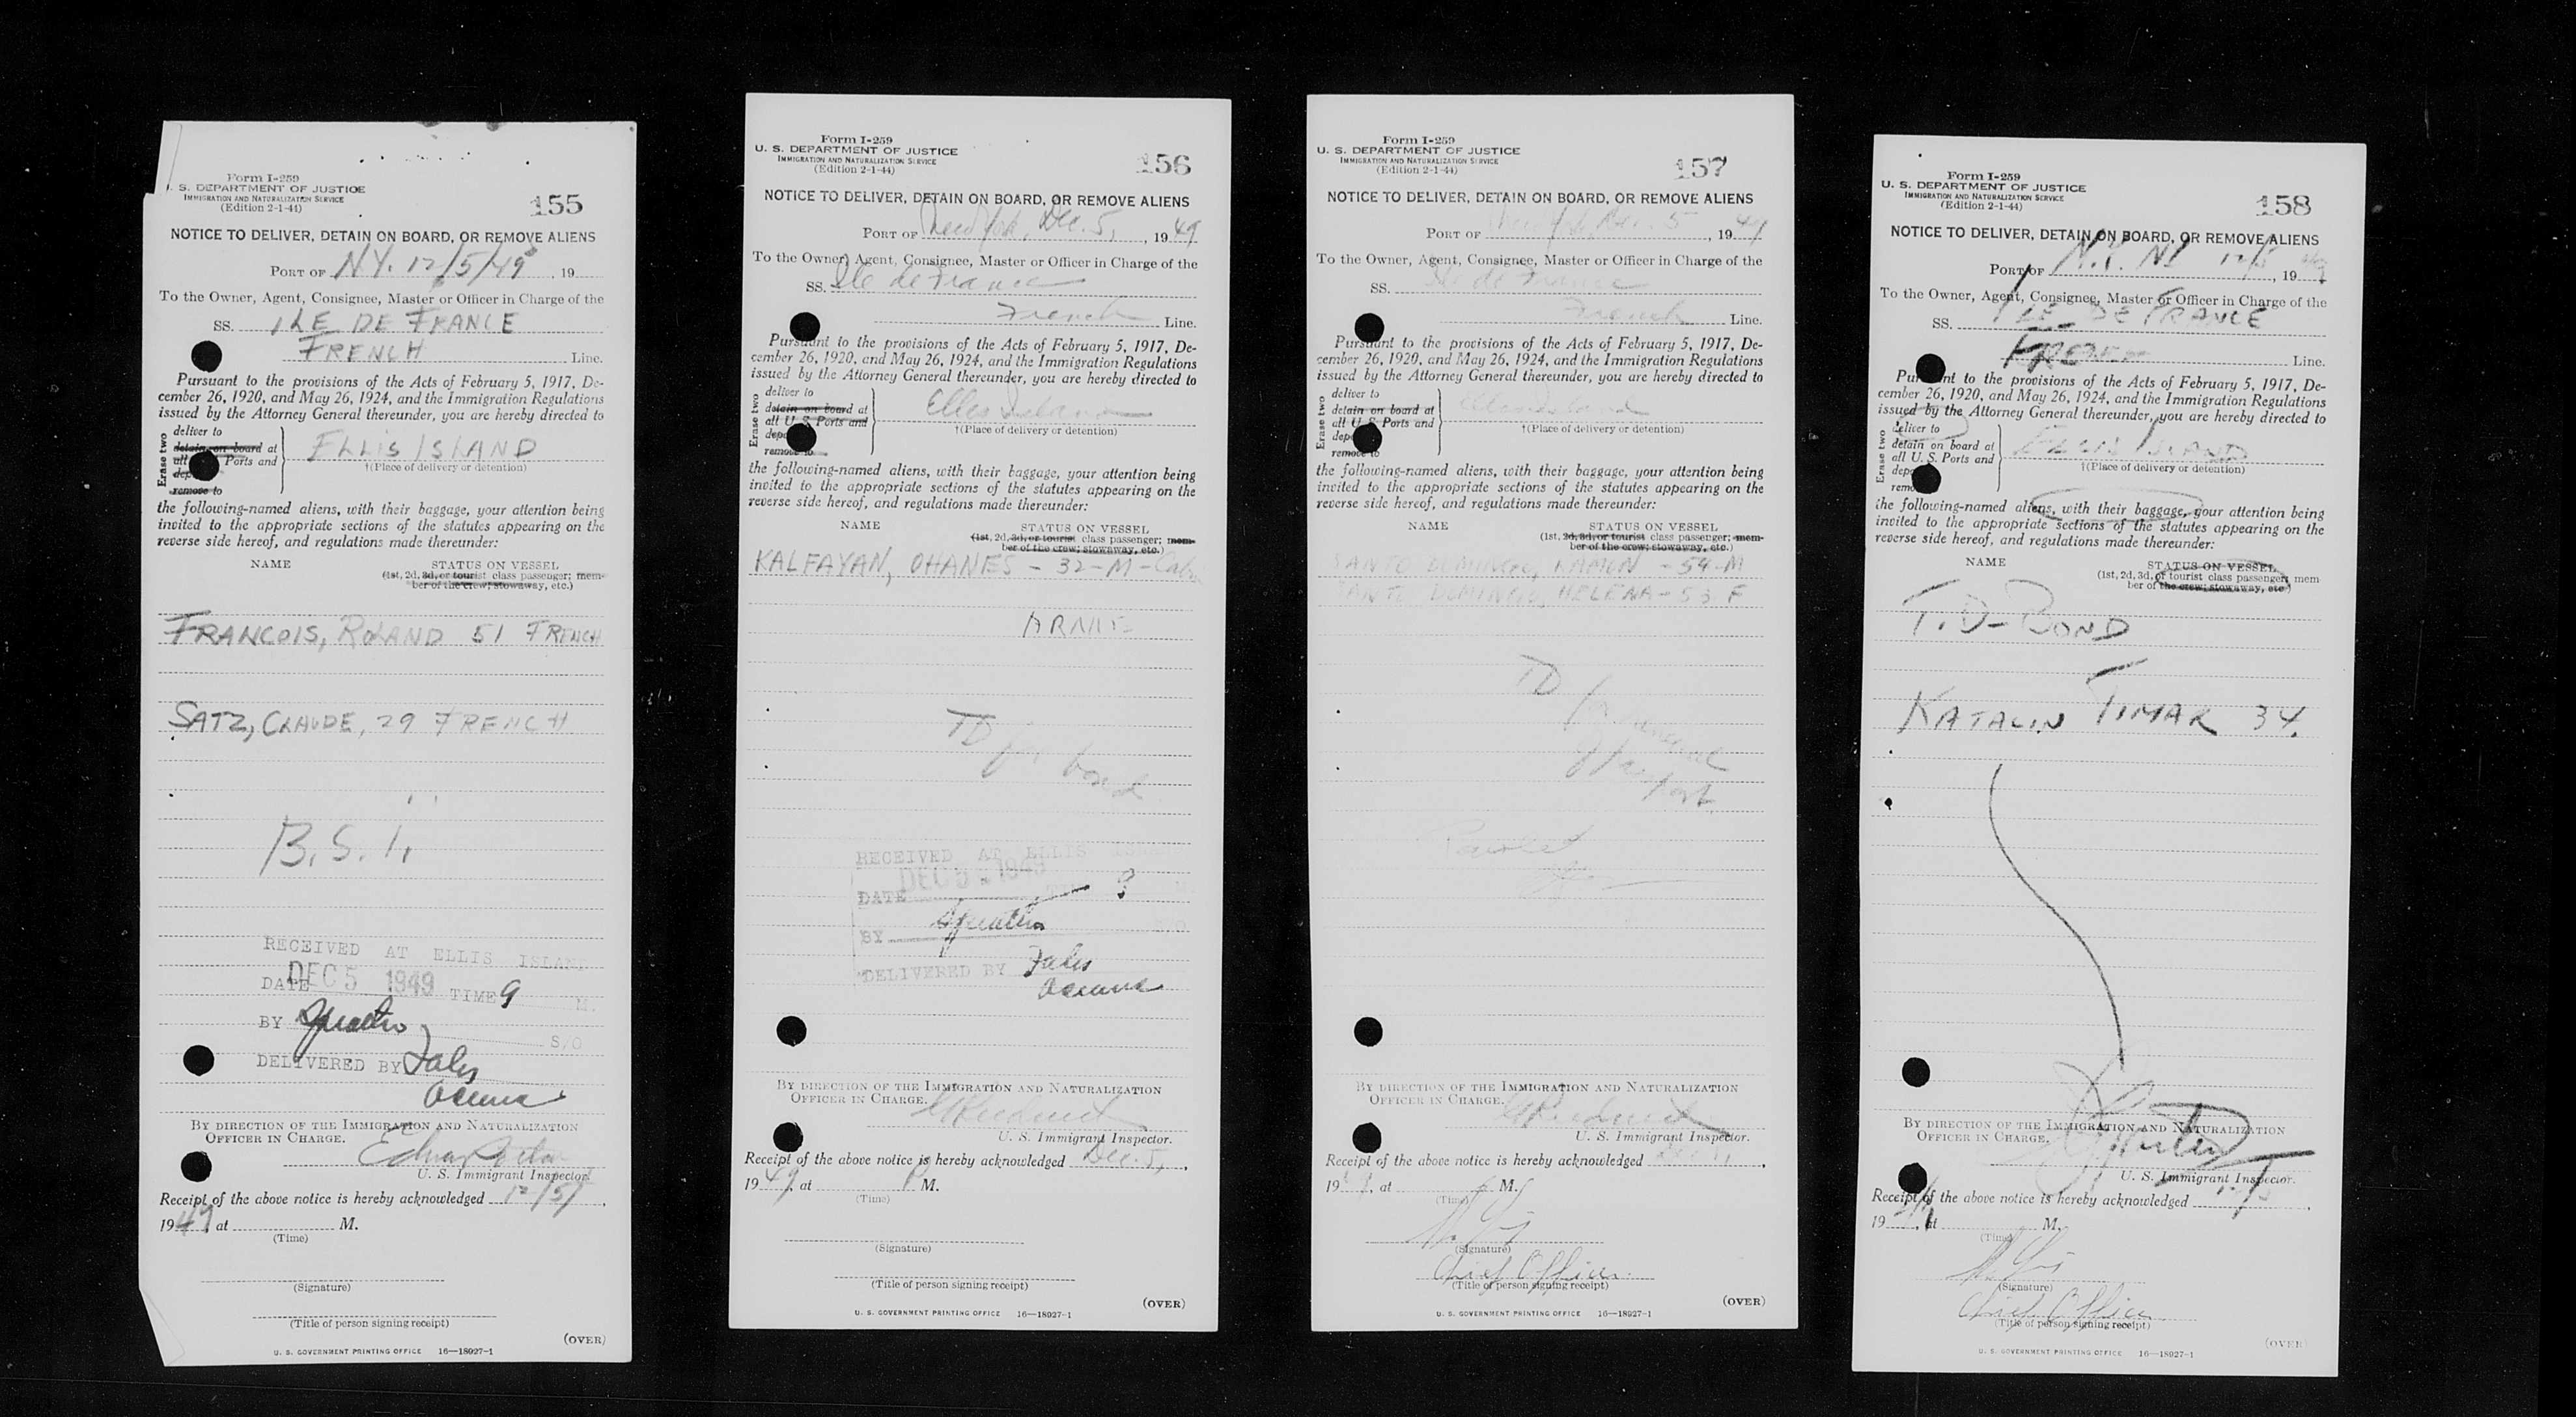 Form I-259
U. S. DEPARTMENT OF JUSTICE
IMMIGRATION AND NATURALIZATION SERVICE
(Edition 2-1-44)
155
NOTICE TO DELIVER, DETAIN ON BOARD, OR REMOVE ALIENS
PORT OF N.Y. 12/5/49, 19
To the Owner, Agent, Consignee, Master or Officer in Charge of the
SS. ILE DE FRANCE
FRENCH Line.
Pursuant to the provisions of the Acts of February 5, 1917, De-
cember 26, 1920, and May 26, 1924, and the Immigration Regulations
issued by the Attorney General thereunder, you are hereby directed to
Erase two
deliver to
detain on board at
all Ports and
remove to
ELLIS ISLAND
†(Place of delivery or detention)
the following-named aliens, with their baggage, your attention being
invited to the appropriate sections of the statutes appearing on the
reverse side hereof, and regulations made thereunder:
NAME STATUS ON VESSEL
(1st, 2d, 3d, or tourist class passenger; mem-
ber of the crew; stowaway, etc.)
FRANCOIS, ROLAND 51 FRENCH
SATZ, CLAUDE, 29 FRENCH
B.S.I.
RECEIVED AT ELLIS ISLAND
DATE DEC 5 1949 TIME 9 M.
BY S/O
DELIVERED BY
BY DIRECTION OF THE IMMIGRATION AND NATURALIZATION
OFFICER IN CHARGE.
U. S. Immigrant Inspector.
Receipt of the above notice is hereby acknowledged 12/5,
1949, at M.
(Time)
(Signature)
(Title of person signing receipt)
(OVER)
U. S. GOVERNMENT PRINTING OFFICE 16—18027-1
Form I-259
U. S. DEPARTMENT OF JUSTICE
IMMIGRATION AND NATURALIZATION SERVICE
(Edition 2-1-44)
156
NOTICE TO DELIVER, DETAIN ON BOARD, OR REMOVE ALIENS
PORT OF New York, Dec. 5, 1949
To the Owner, Agent, Consignee, Master or Officer in Charge of the
SS. Ile de France
French Line.
Pursuant to the provisions of the Acts of February 5, 1917, De-
cember 26, 1920, and May 26, 1924, and the Immigration Regulations
issued by the Attorney General thereunder, you are hereby directed to
Erase two
deliver to
detain on board at
all U. S. Ports and
remove to
Ellis Island
†(Place of delivery or detention)
the following-named aliens, with their baggage, your attention being
invited to the appropriate sections of the statutes appearing on the
reverse side hereof, and regulations made thereunder:
NAME STATUS ON VESSEL
(1st, 2d, 3d, or tourist class passenger; mem-
ber of the crew; stowaway, etc.)
KALFAYAN, OHANES - 32-M-
TD for bond
RECEIVED AT ELLIS
DATE DEC 5 1949
BY S/O
DELIVERED BY
BY DIRECTION OF THE IMMIGRATION AND NATURALIZATION
OFFICER IN CHARGE.
U. S. Immigrant Inspector.
Receipt of the above notice is hereby acknowledged Dec. 5,
1949, at P M.
(Time)
(Signature)
(Title of person signing receipt)
(OVER)
U. S. GOVERNMENT PRINTING OFFICE 16—18027-1
Form I-259
U. S. DEPARTMENT OF JUSTICE
IMMIGRATION AND NATURALIZATION SERVICE
(Edition 2-1-44)
157
NOTICE TO DELIVER, DETAIN ON BOARD, OR REMOVE ALIENS
PORT OF New York, Dec. 5, 1949
To the Owner, Agent, Consignee, Master or Officer in Charge of the
SS. Ile de France
French Line.
Pursuant to the provisions of the Acts of February 5, 1917, De-
cember 26, 1920, and May 26, 1924, and the Immigration Regulations
issued by the Attorney General thereunder, you are hereby directed to
Erase two
deliver to
detain on board at
all U. S. Ports and
remove to
Ellis Island
†(Place of delivery or detention)
the following-named aliens, with their baggage, your attention being
invited to the appropriate sections of the statutes appearing on the
reverse side hereof, and regulations made thereunder:
NAME STATUS ON VESSEL
(1st, 2d, 3d, or tourist class passenger; mem-
ber of the crew; stowaway, etc.)
SANTO DOMINGO, RAMON - 54-M
SANTO DOMINGO, HELENA - 53 F
TD
BY DIRECTION OF THE IMMIGRATION AND NATURALIZATION
OFFICER IN CHARGE.
U. S. Immigrant Inspector.
Receipt of the above notice is hereby acknowledged
19, at M.
(Time)
(Signature)
Chief Officer
(Title of person signing receipt)
(OVER)
U. S. GOVERNMENT PRINTING OFFICE 16—18027-1
Form I-259
U. S. DEPARTMENT OF JUSTICE
IMMIGRATION AND NATURALIZATION SERVICE
(Edition 2-1-44)
158
NOTICE TO DELIVER, DETAIN ON BOARD, OR REMOVE ALIENS
PORT OF N.Y. NY 12/5, 19
To the Owner, Agent, Consignee, Master or Officer in Charge of the
SS. ILE DE FRANCE
FRENCH Line.
Pursuant to the provisions of the Acts of February 5, 1917, De-
cember 26, 1920, and May 26, 1924, and the Immigration Regulations
issued by the Attorney General thereunder, you are hereby directed to
Erase two
deliver to
detain on board at
all U. S. Ports and
ELLIS ISLAND
†(Place of delivery or detention)
the following-named aliens, with their baggage, your attention being
invited to the appropriate sections of the statutes appearing on the
reverse side hereof, and regulations made thereunder:
NAME STATUS ON VESSEL
(1st, 2d, 3d, or tourist class passenger; mem
ber of the crew; stowaway, etc.)
T.D-BOND
KATALIN TIMAR 34.
BY DIRECTION OF THE IMMIGRATION AND NATURALIZATION
OFFICER IN CHARGE.
U. S. Immigrant Inspector.
Receipt of the above notice is hereby acknowledged
19, at M.
(Time)
(Signature)
Chief Officer
(Title of person signing receipt)
(OVER)
U. S. GOVERNMENT PRINTING OFFICE 16—18027-1